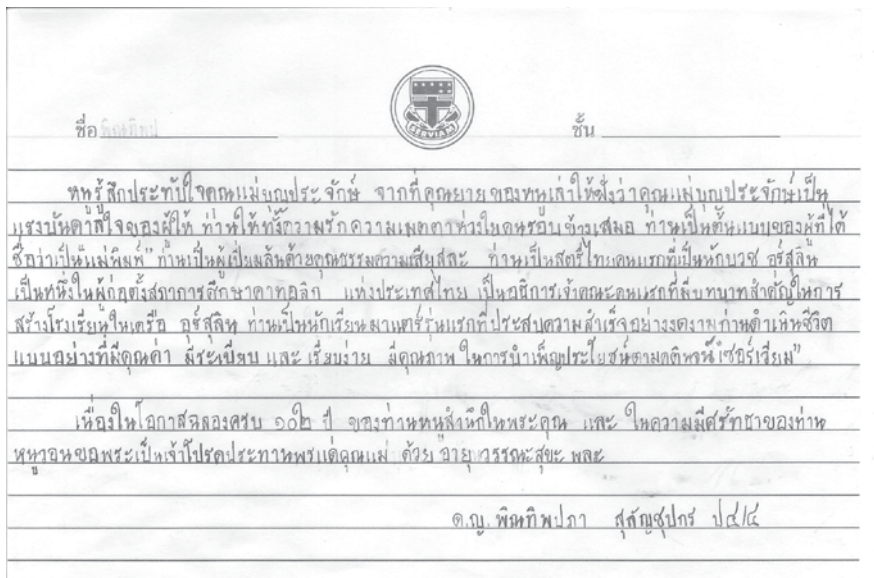 ชื่อ พิณทิพป ชั้น
SERVIAM
หนูรู้สึกประทับใจคุณแม่บุญประจักษ์ จากที่คุณยายของหนูเล่าให้ฟังว่าคุณแม่บุญประจักษ์เป็น
แรงบันดาลใจของผู้ให้ ท่านให้ทั้งความรักความเมตตาห่วงใยคนรอบข้างเสมอ ท่านเป็นต้นแบบของผู้ที่ได้
ชื่อว่าเป็น"แม่พิมพ์" ท่านเป็นผู้เปี่ยมล้นด้วยคุณธรรมความเสียสละ ท่านเป็นสตรีไทยคนแรกที่เป็นนักบวช อุร์สุลิน
เป็นหนึ่งในผู้ก่อตั้งสภาการศึกษาคาทอลิก แห่งประเทศไทย เป็นอธิการเจ้าคณะคนแรกที่มีบทบาทสำคัญในการ
สร้างโรงเรียนในเครือ อุร์สุลิน ท่านเป็นนักเรียนมาแตร์รุ่นแรกที่ประสบความสำเร็จอย่างงดงามท่านดำเนินชีวิต
แบบอย่างที่มีคุณค่า มีระเบียบ และ เรียบง่าย มีคุณภาพ ในการบำเพ็ญประโยชน์ตามคติพจน์"เซอร์เวียม"
เนื่องในโอกาสฉลองครบ ๑๐๒ ปี ของท่านหนูสำนึกในพระคุณ และ ในความมีศรัทธาของท่าน
หนูวอนขอพระเป็นเจ้าโปรดประทานพรแด่คุณแม่ ด้วย อายุ วรรณะ สุขะ พละ
ด.ญ. พิณทิพปภา สุลัญชุปกร ป๔/๔